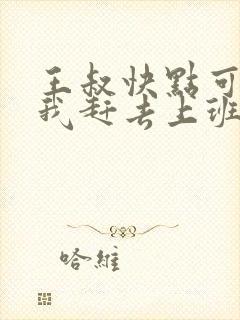 王叔快點可
我赶去上班
哈維